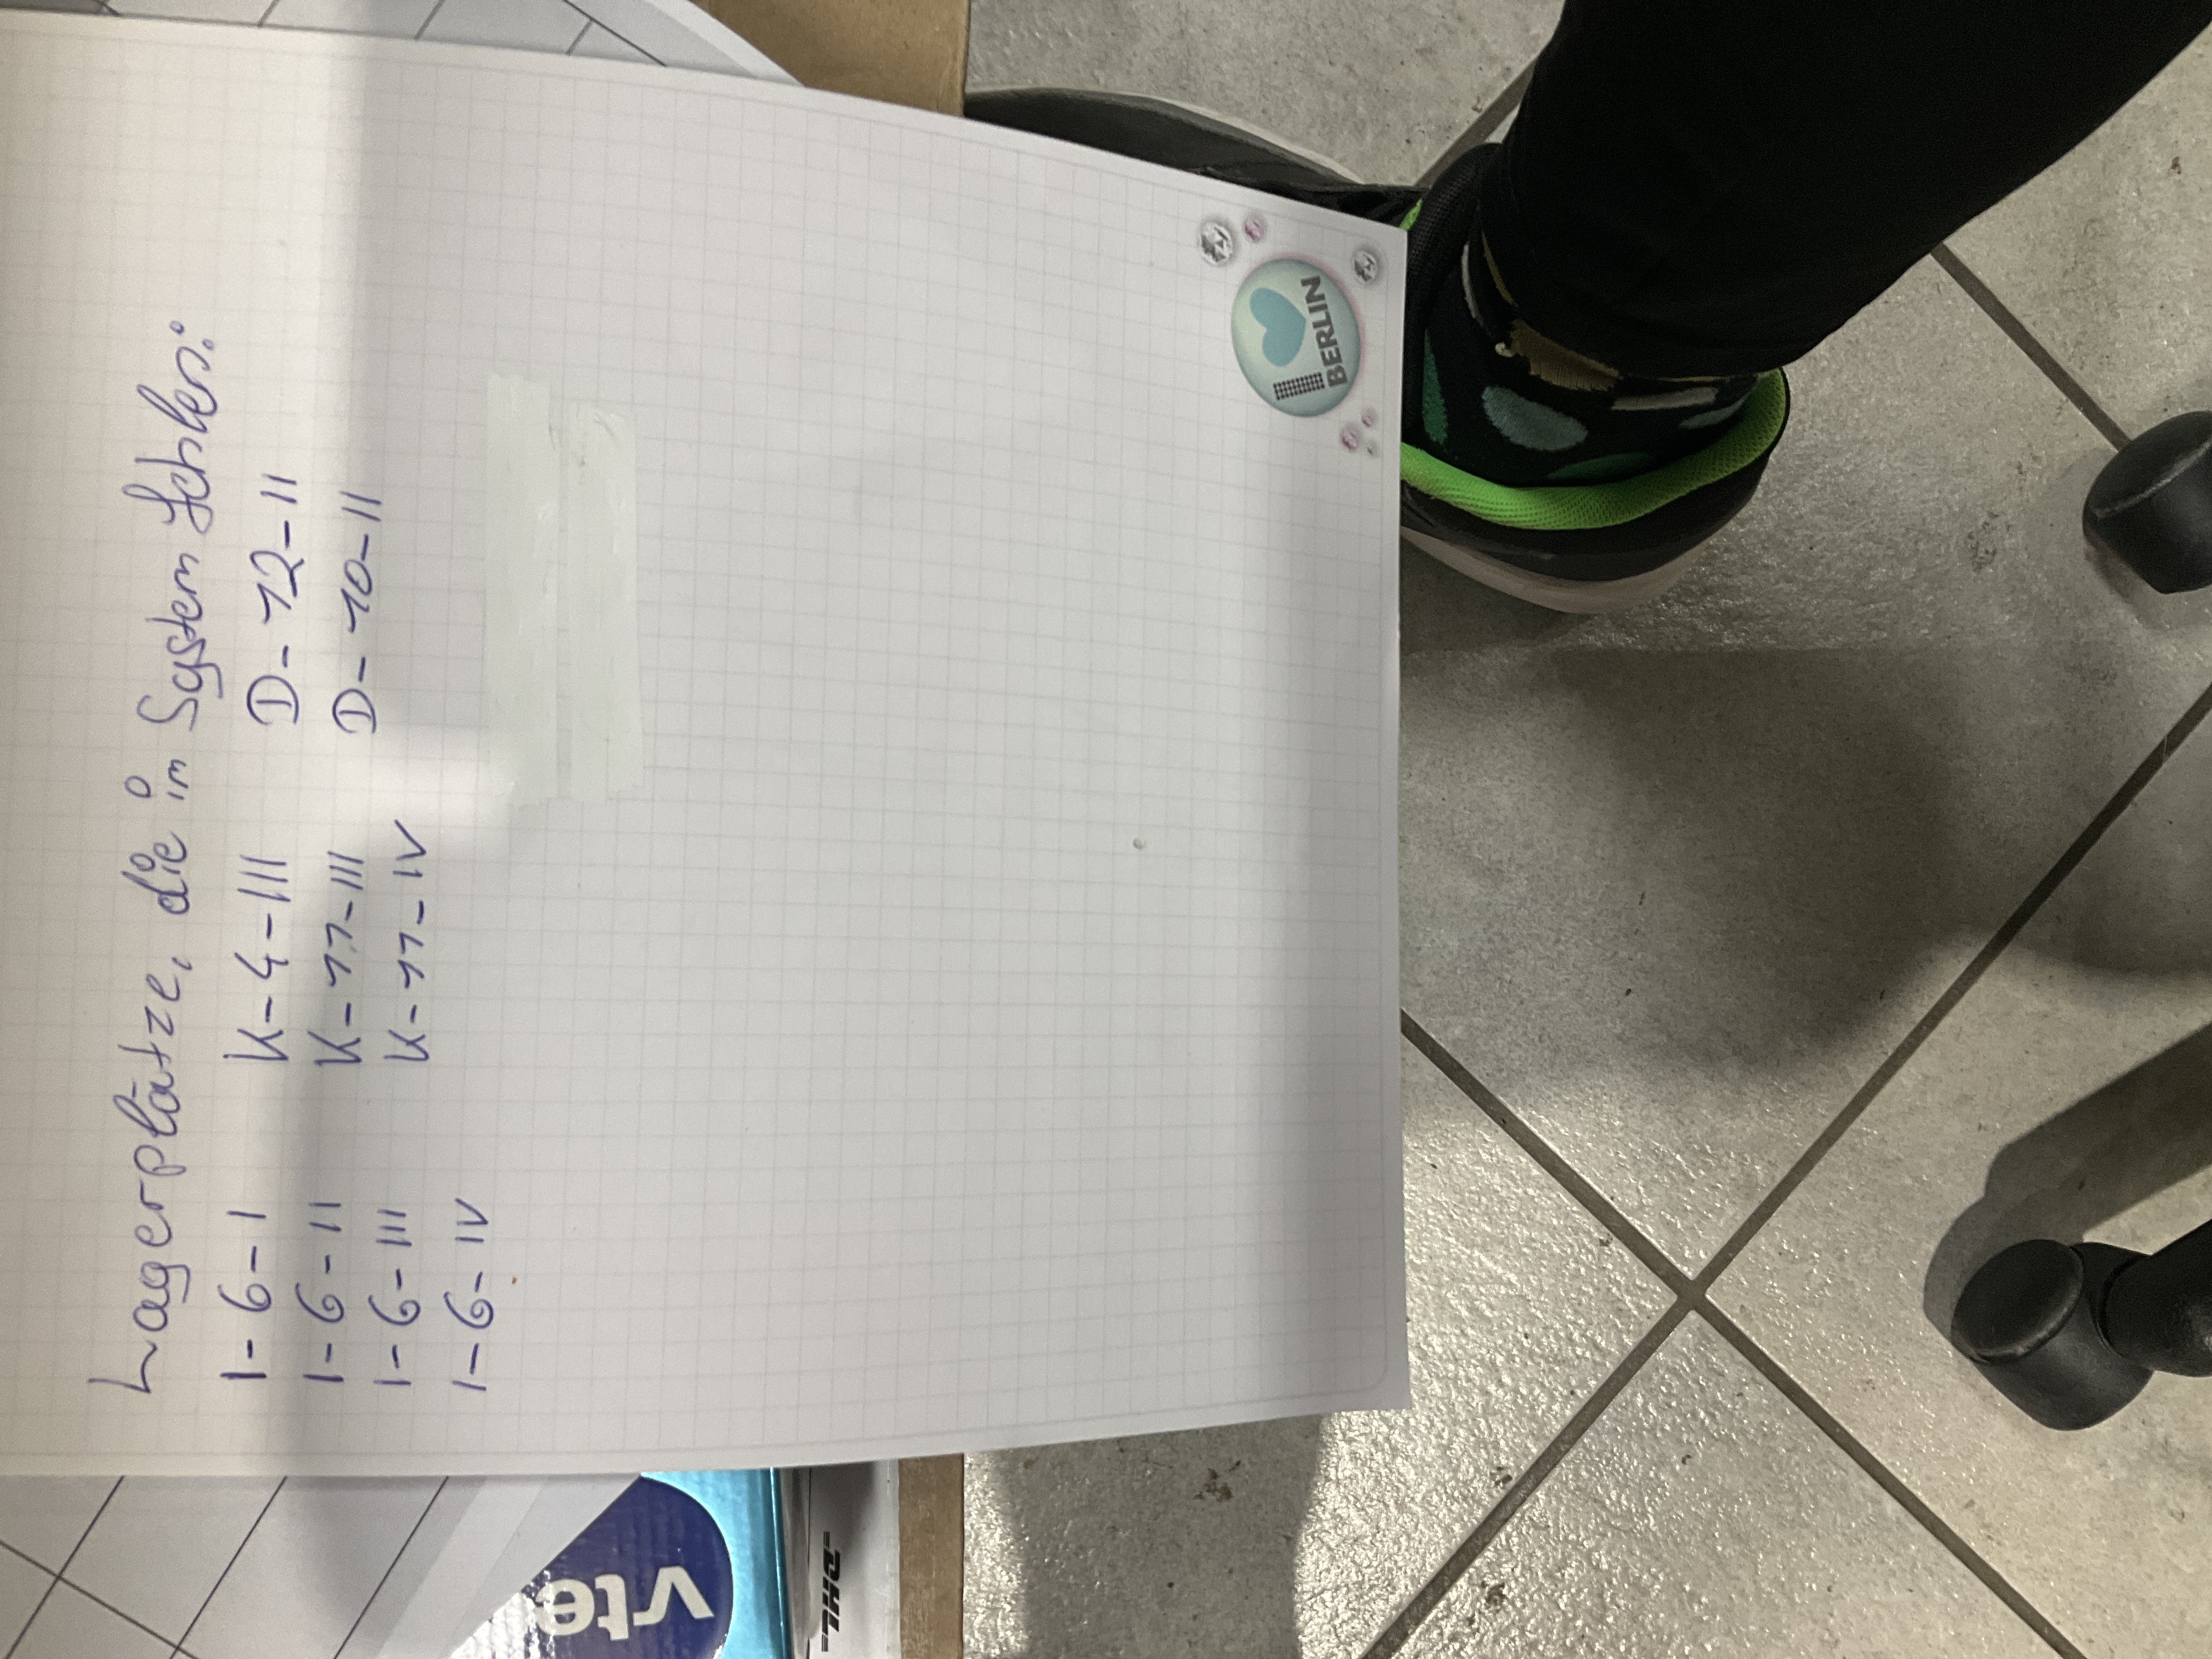 Lagerplätze, die im System fehlen:
I-6-I
I-6-II
I-6-III
I-6-IV
K-4-III
K-11-III
K-11-IV
D-12-II
D-10-II
vte
DHL
I
BERLIN